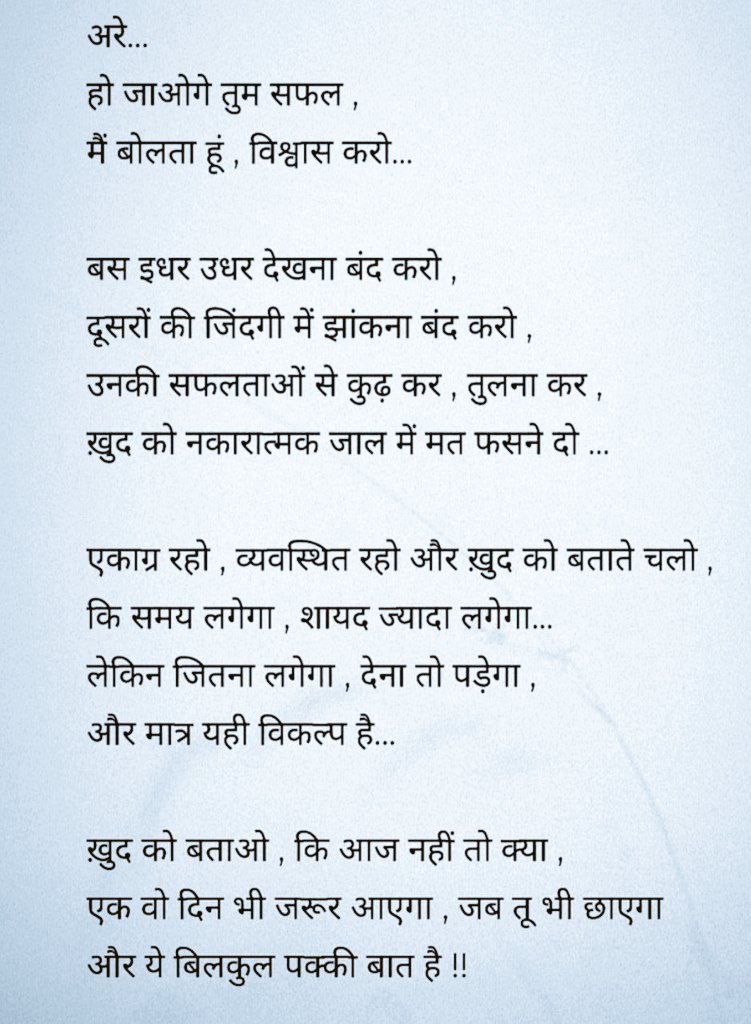 अरे...
हो जाओगे तुम सफल ,
मैं बोलता हूं , विश्वास करो...
बस इधर उधर देखना बंद करो ,
दूसरों की जिंदगी में झांकना बंद करो ,
उनकी सफलताओं से कुढ़ कर , तुलना कर ,
ख़ुद को नकारात्मक जाल में मत फसने दो ...
एकाग्र रहो , व्यवस्थित रहो और ख़ुद को बताते चलो ,
कि समय लगेगा , शायद ज्यादा लगेगा...
लेकिन जितना लगेगा , देना तो पड़ेगा ,
और मात्र यही विकल्प है...
ख़ुद को बताओ , कि आज नहीं तो क्या ,
एक वो दिन भी जरूर आएगा , जब तू भी छाएगा
और ये बिलकुल पक्की बात है !!